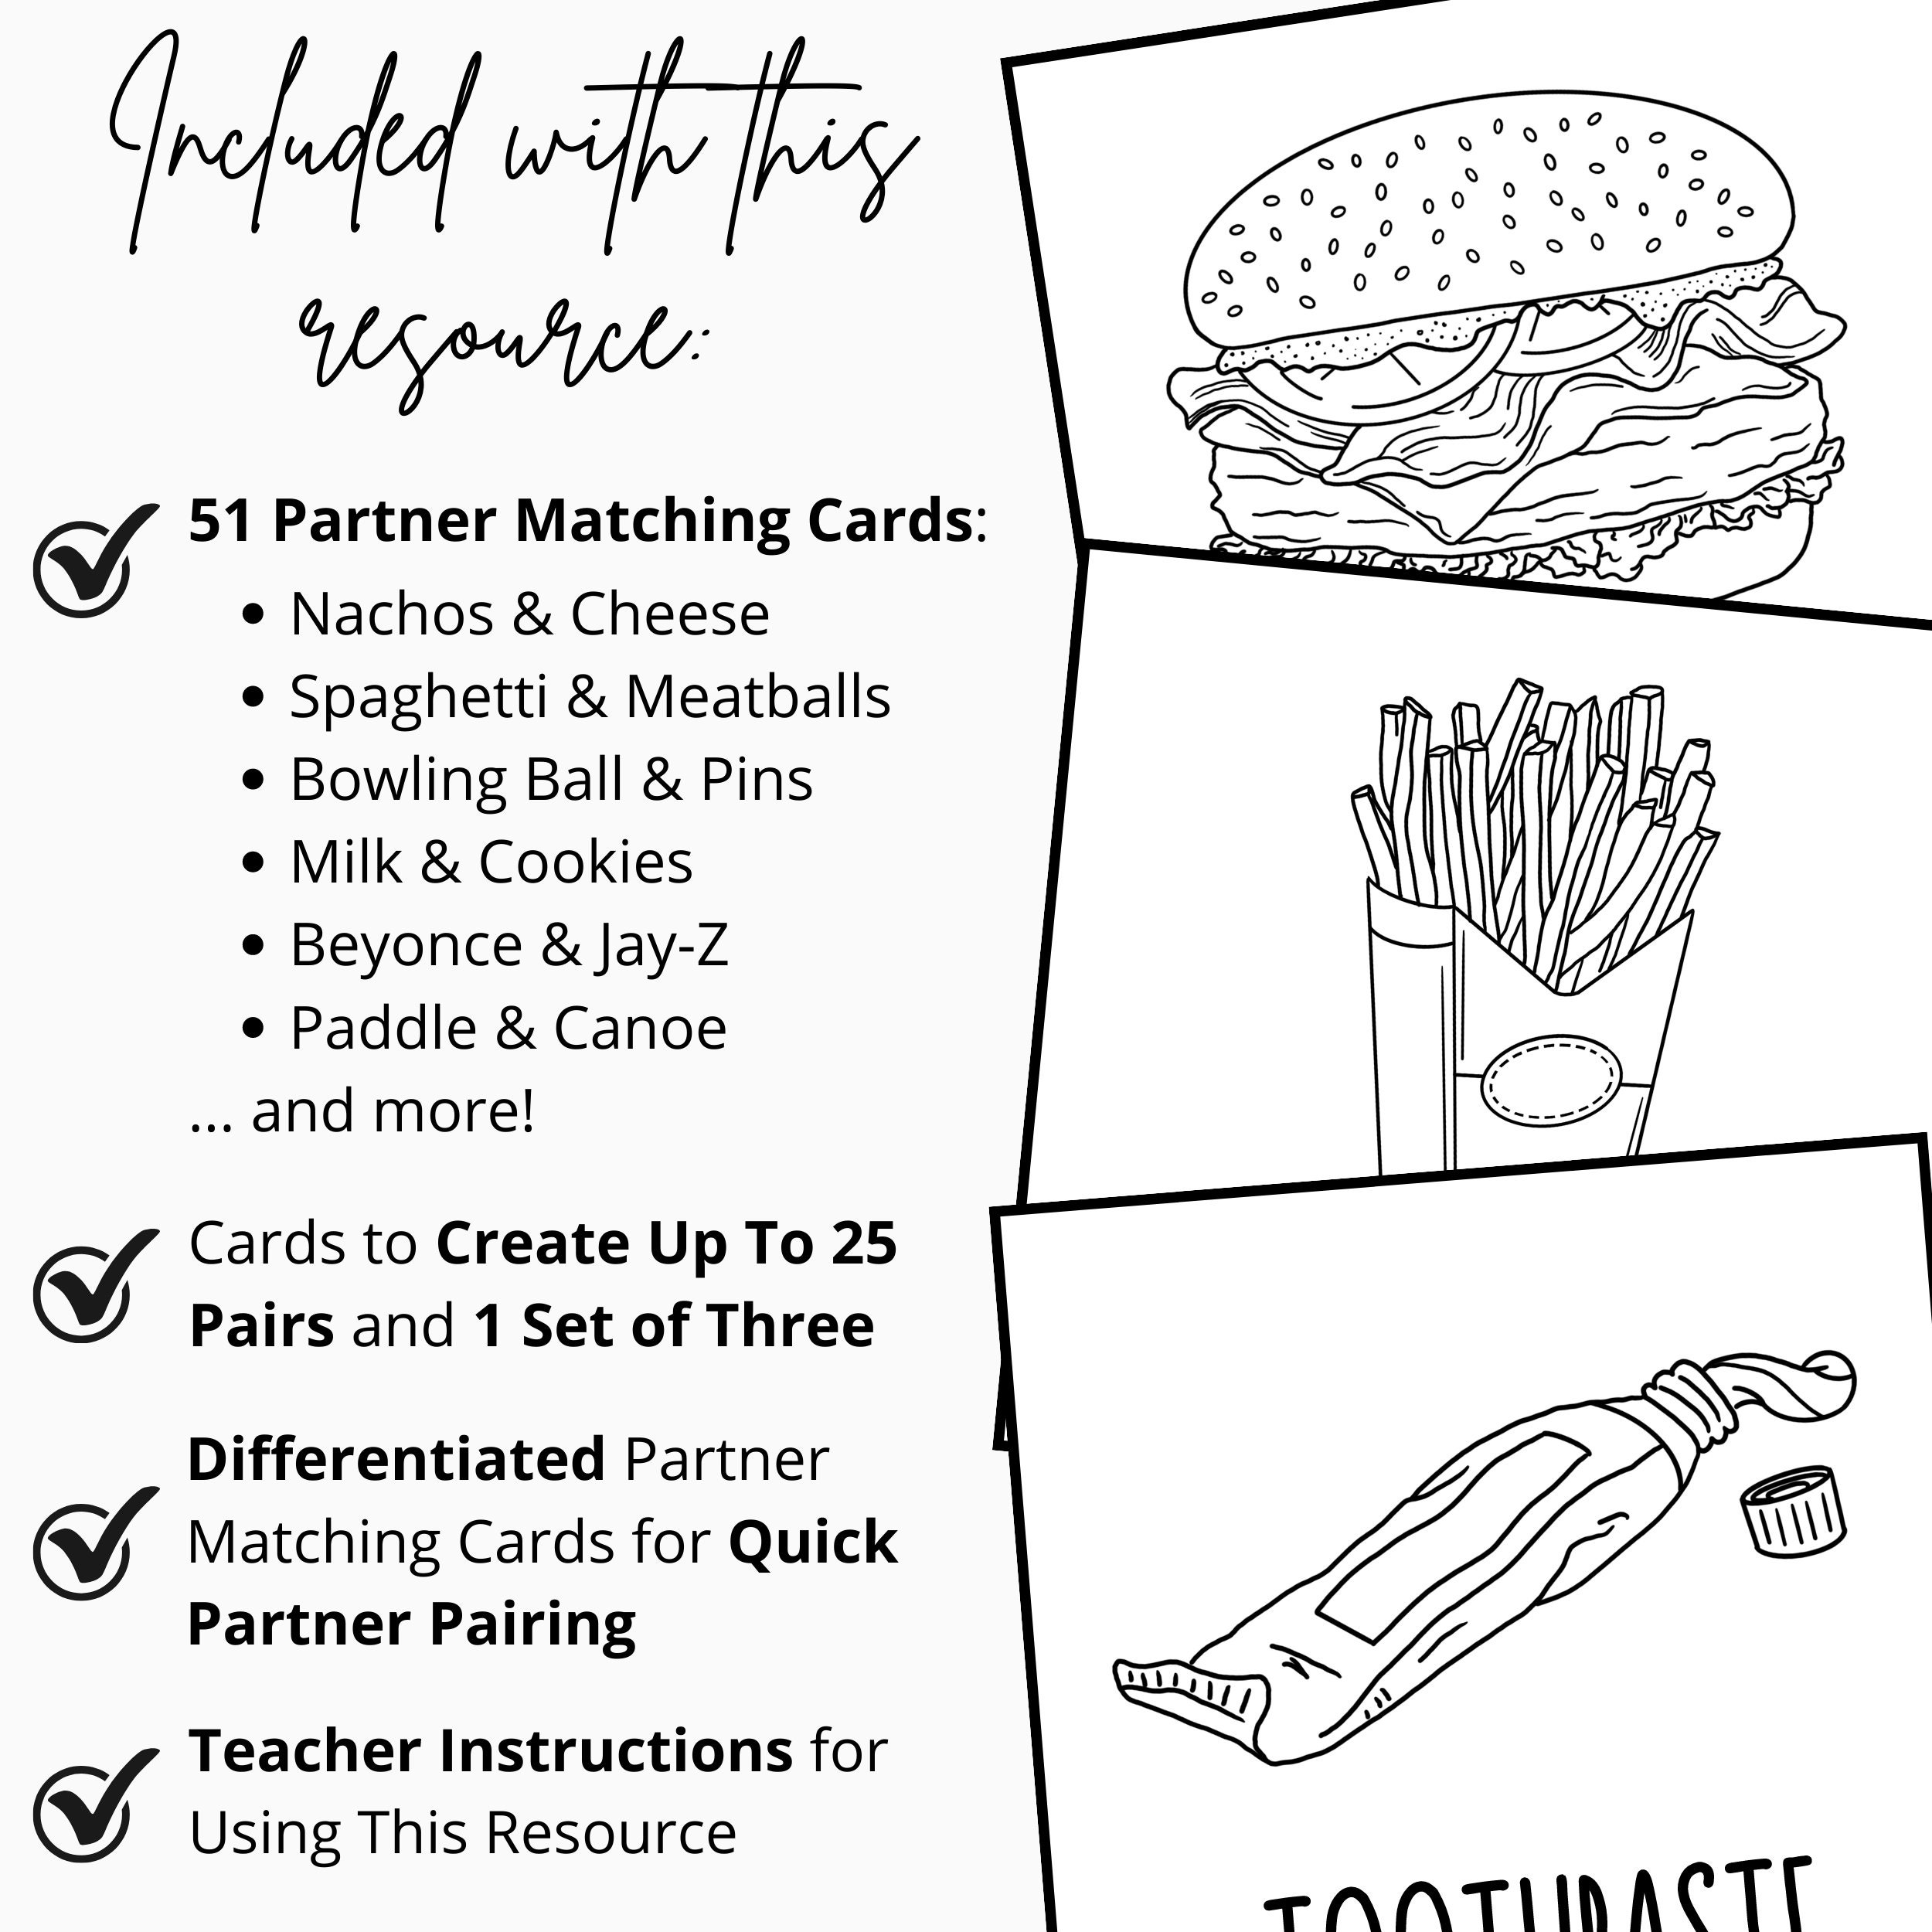 Included with this
resource:
51 Partner Matching Cards:
• Nachos & Cheese
• Spaghetti & Meatballs
• Bowling Ball & Pins
• Milk & Cookies
• Beyonce & Jay-Z
• Paddle & Canoe
... and more!
Cards to Create Up To 25
Pairs and 1 Set of Three
Differentiated Partner
Matching Cards for Quick
Partner Pairing
Teacher Instructions for
Using This Resource
TOOTHPASTE